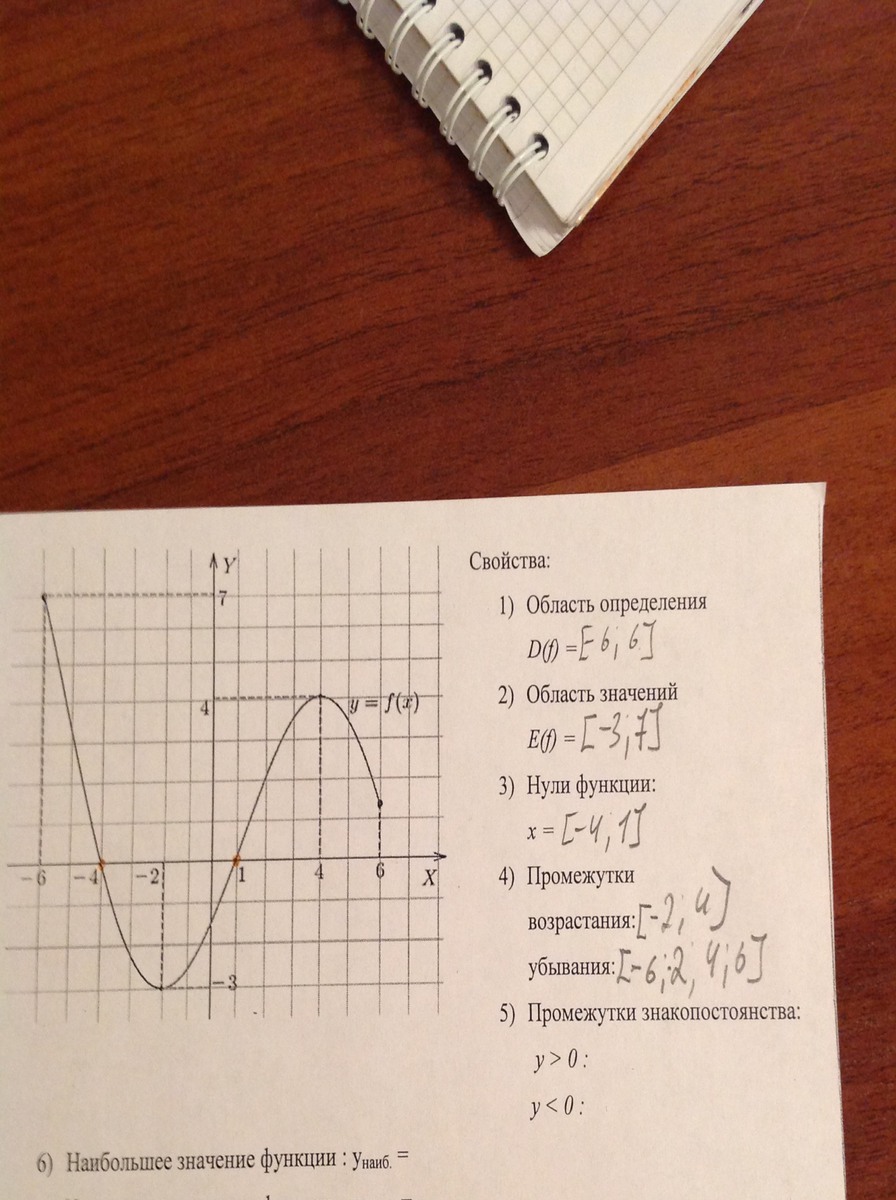 Y
7
4
y = f(x)
−6 −4 −2 1 4 6 X
−3
Свойства:
1) Область определения
D(f) = [-6; 6]
2) Область значений
E(f) = [-3; 7]
3) Нули функции:
x = [-4, 1]
4) Промежутки
возрастания: [-2; 4]
убывания: [-6;-2, 4;6]
5) Промежутки знакопостоянства:
y > 0 :
y < 0 :
6) Наибольшее значение функции : yнаиб. =